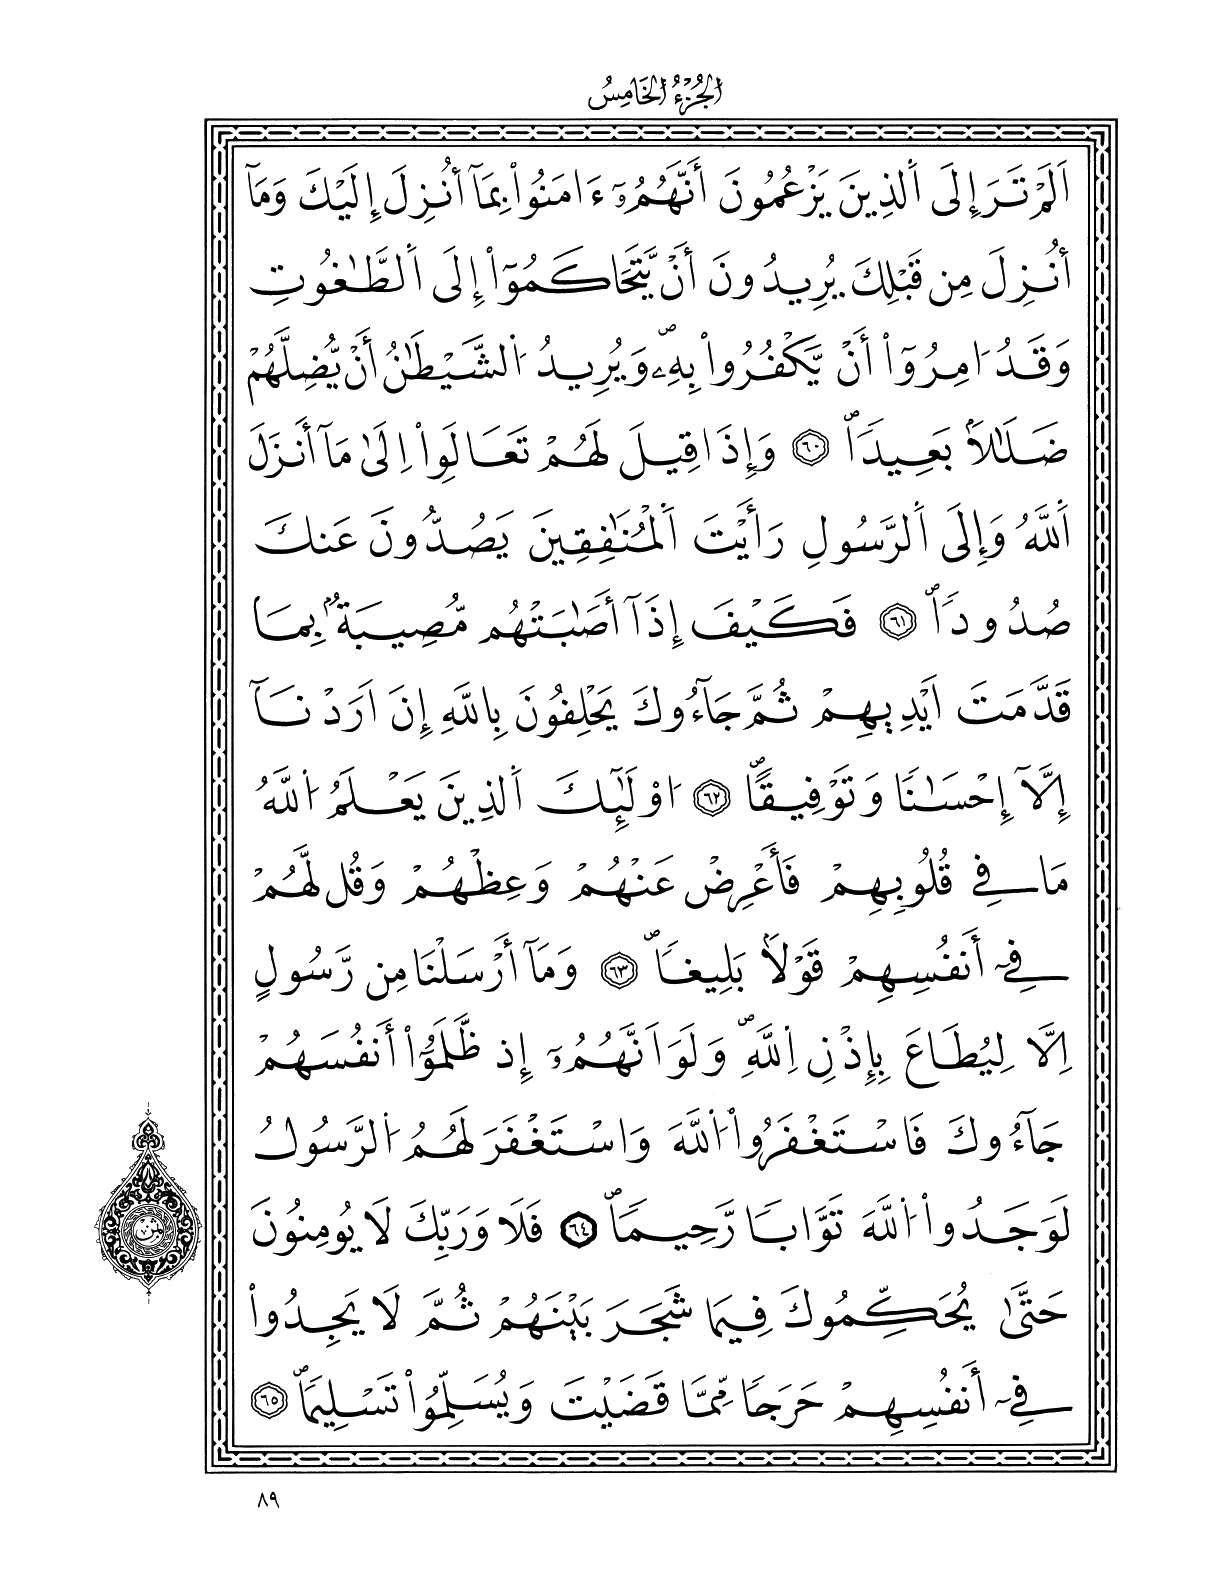 الجزء الخامس
اَلَمْ تَرَ إِلَى اَ۬لذِينَ يَزْعُمُونَ أَنَّهُمُۥٓ ءَامَنُواْ بِمَآ أُنزِلَ إِلَيْكَ وَمَآ
أُنزِلَ مِن قَبْلِكَ يُرِيدُونَ أَنْ يَّتَحَاكَمُوٓاْ إِلَى اَ۬لطَّٰغُوتِ
وَقَدُ ا۟مِرُوٓاْ أَنْ يَّكْفُرُواْ بِهِۦۖ وَيُرِيدُ اُ۬لشَّيْطَٰنُ أَنْ يُّضِلَّهُمْ
ضَلَٰلاَۢ بَعِيداٗۖ ٦٠ وَإِذَا قِيلَ لَهُمْ تَعَالَوِاْ اِلَىٰ مَآ أَنزَلَ
اَ۬للَّهُ وَإِلَى اَ۬لرَّسُولِ رَأَيْتَ اَ۬لْمُنَٰفِقِينَ يَصُدُّونَ عَنكَ
صُدُوداٗۖ ٦١ فَكَيْفَ إِذَآ أَصَٰبَتْهُم مُّصِيبَةُۢ بِمَا
قَدَّمَتَ اَيْدِيهِمْ ثُمَّ جَآءُوكَ يَحْلِفُونَ بِاللَّهِ إِنَ اَرَدْنَآ
إِلَّآ إِحْسَٰناٗ وَتَوْفِيقاًۖ ٦٢ ا۟وْلَٰٓئِكَ اَ۬لذِينَ يَعْلَمُ اُ۬للَّهُ
مَا فِي قُلُوبِهِمْ فَأَعْرِضْ عَنْهُمْ وَعِظْهُمْ وَقُل لَّهُمْ
فِيٓ أَنفُسِهِمْ قَوْلاَۢ بَلِيغاٗۖ ٦٣ وَمَآ أَرْسَلْنَا مِن رَّسُولٍ
اِلَّا لِيُطَاعَ بِإِذْنِ اِ۬للَّهِۖ وَلَوَ اَنَّهُمُۥٓ إِذ ظَّلَمُوٓاْ أَنفُسَهُمْ
جَآءُوكَ فَاسْتَغْفَرُواْ اُ۬للَّهَ وَاسْتَغْفَرَ لَهُمُ اُ۬لرَّسُولُ
لَوَجَدُواْ اُ۬للَّهَ تَوَّاباٗ رَّحِيماٗۖ ٦٤ فَلَا وَرَبِّكَ لَا يُومِنُونَ
حَتَّىٰ يُحَكِّمُوكَ فِيمَا شَجَرَ بَيْنَهُمْ ثُمَّ لَا يَجِدُواْ
فِيٓ أَنفُسِهِمْ حَرَجاٗ مِّمَّا قَضَيْتَ وَيُسَلِّمُواْ تَسْلِيماٗۖ ٦٥
ثمن
٨٩